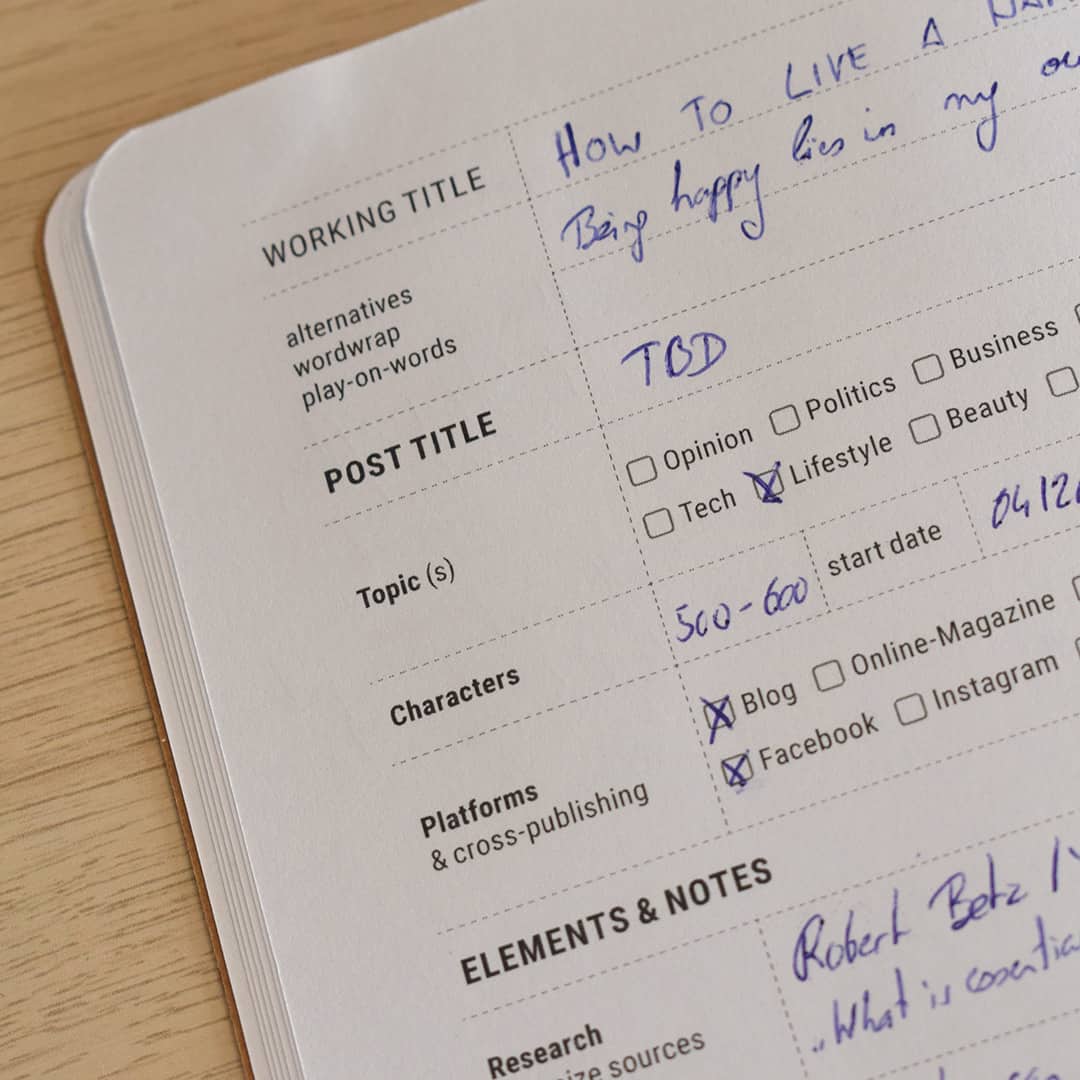 WORKING TITLE HOW TO LIVE A
Being happy lies in my
alternatives
wordwrap
play-on-words
POST TITLE TBD
Topic (s)
Opinion Politics Business
Tech Lifestyle Beauty
Characters 500-600 start date
Platforms
& cross-publishing
Blog Online-Magazine
Facebook Instagram
ELEMENTS & NOTES
Research Robert Betz
sources „What is